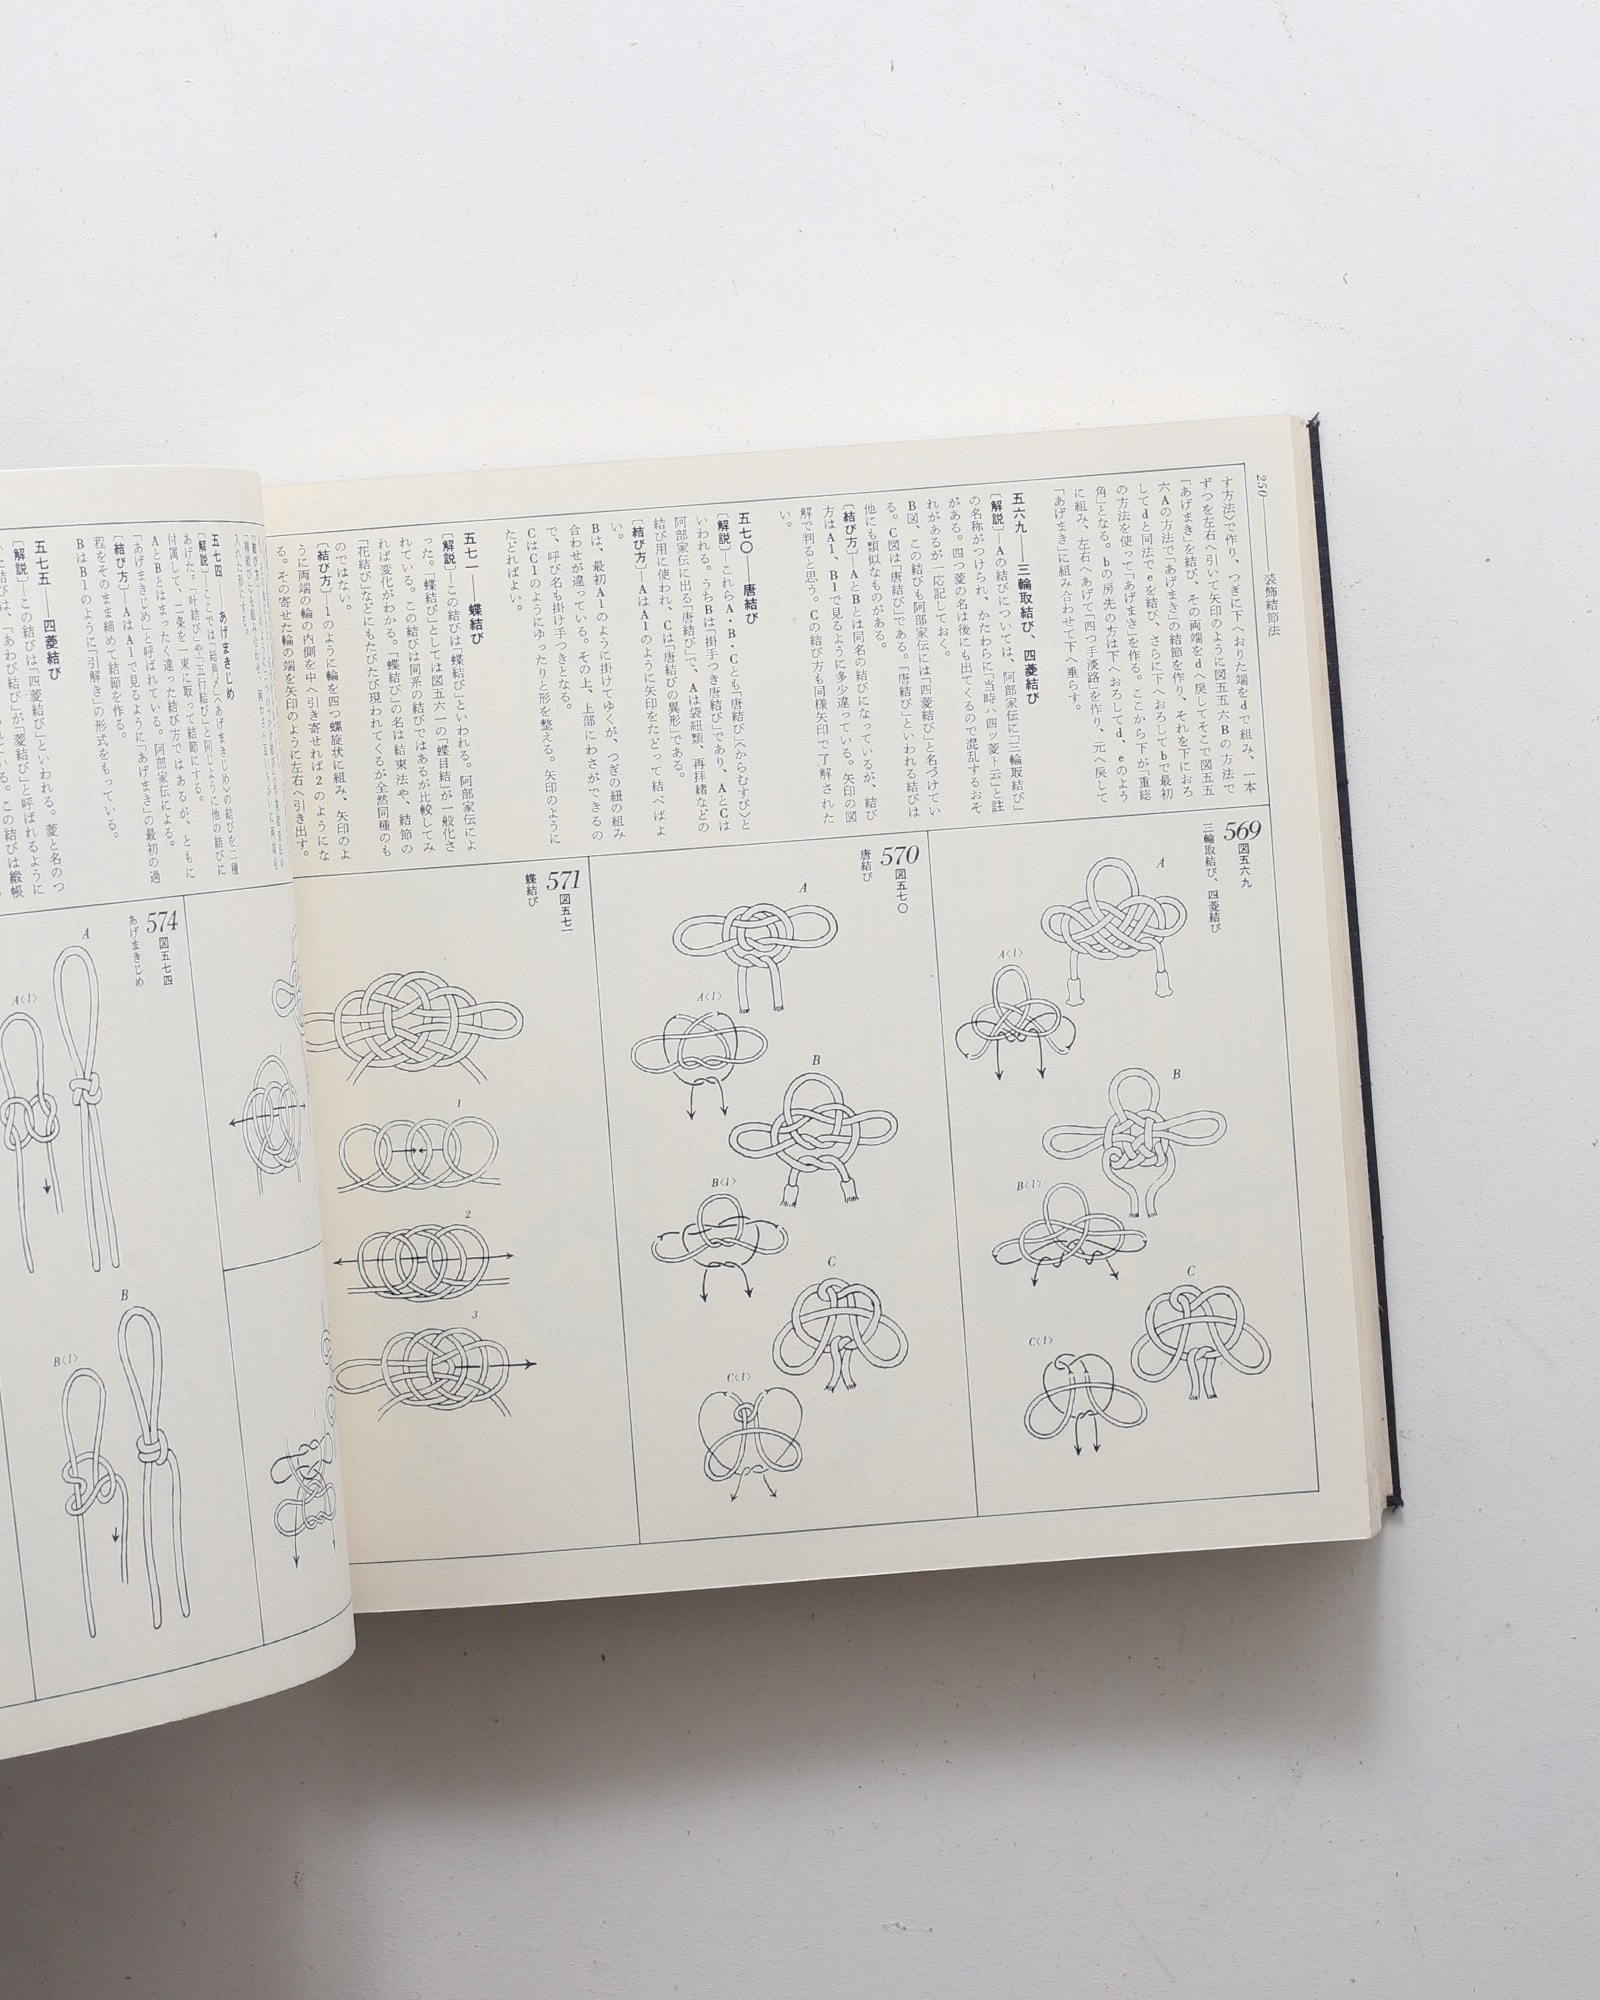 250――装飾結節法
す方法〉で作り、つぎに下へおりた端をdで組み、一本
ずつを左右へ引いて矢印のように図五五六Bの方法で
「あげまき」を結び、その両端をdへ戻してそこで図五五
六Aの方法で「あげまき」の結節を作り、それを下におろ
してdと同法でeを結び、さらに下へおろしてbで最初
の方法を使って「あげまき」を作る。ここから下が「重総
角」となる。bの房先の方は下へおろしてd、eのよう
に組み、左右へあげて「四つ手淡路」を作り、元へ戻して
「あげまき」に組み合わせて下へ垂らす。
五六九――三輪取結び、四菱結び
〔解説〕―Aの結びについては、阿部家伝に「三輪取結び」
の名称がつけられ、かたわらに「当時ハ四ッ菱ト云」と註
がある。四つ菱の名は後にも出てくるので混乱するおそ
れがあるが一応記しておく。
B図、この結びも阿部家伝には「四菱結び」と名づけてい
る。C図は「唐結び」である。「唐結び」といわれる結びは
他にも類似なものがある。
〔結び方〕―AとBとは同名の結びになっているが、結び
方はA1、B1で見るように多少違っている。矢印の図
解で判ると思う。Cの結び方も同様矢印で了解された
い。
五七〇――唐結び
〔解説〕―これらA・B・Cとも「唐結び」〈からむすび〉と
いわれる。うちBは「掛手つき唐結び」であり、AとCは
阿部家伝に出る「唐結び」で、Aは袋紐類、再拝緒などの
結び用に使われ、Cは「唐結びの異形」である。
〔結び方〕―AはA1のように矢印をたどって結べばよ
い。
Bは、最初A1のように掛けてゆくが、つぎの紐の組み
合わせが違っている。その上、上部にわさができるの
で、呼び名も掛け手つきとなる。
CはC1のようにゆったりと形を整える。矢印のように
たどればよい。
五七一――蝶結び
〔解説〕―この結びは「蝶結び」といわれる。阿部家伝によ
った。「蝶結び」としては図五六一の「蝶目結」が一般化さ
れている。この結びは同系の結びではあるが比較してみ
れば変化がわかる。「蝶結び」の名は結束法や、結節の
「花結び」などにもたびたび現われてくるが全然同種のも
のではない。
〔結び方〕―1のように輪を四つ螺旋状に組み、矢印のよ
うに両端の輪の内側を中へ引き寄せれば2のようにな
る。その寄せた輪の端を矢印のように左右へ引き出す。
569 図五六九
三輪取結び、四菱結び
A
A〈1〉
B
B〈1〉
C
C〈1〉
570 図五七〇
唐結び
A
A〈1〉
B
B〈1〉
C
C〈1〉
571 図五七一
蝶結び
1
2
3
五七四――あげまきじめ
〔解説〕―ここでは「結角〆」〈あげまきじめ〉の結びを二種
あげた。「叶結び」や「五行結び」と同じように他の結びに
付属して、二条を一束に取って結節にする。
AとBとはまったく違った結び方ではあるが、ともに
「あげまきじめ」と呼ばれている。阿部家伝による。
〔結び方〕―AはA1で見るように「あげまき」の最初の過
程をそのまま締めて結節を作る。
BはB1のように「引解き」の形式をもっている。
五七五――四菱結び
〔解説〕―この結びは「四菱結び」といわれる。菱と名のつ
く結びは、「あわび結び」が「菱結び」と呼ばれるように
574 図五七四
あげまきじめ
A
A〈1〉
B
B〈1〉